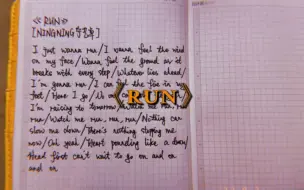 《RUN》
[NINGNING宁艺卓]
I just wanna run/I wanna feel the wind
on my face/Wanna feel the ground as it
breaks with every step/Whatever lies ahead/
I'm gonna run/I can feel the fire in my
feet/Here I go/
I'm racing to tomorrow
run/Watch me run, run, run/Nothing can
slow me down/There's nothing stopping me
now/Ooh yeah/Heart pounding like a down/
Head first can't wait to go on and on
and on
《RUN》